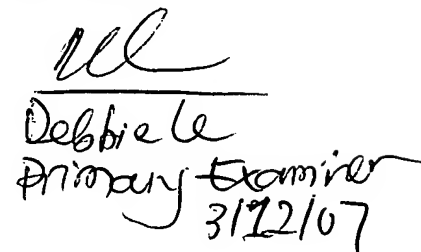 Debbie Le
Primary Examiner
3/12/07